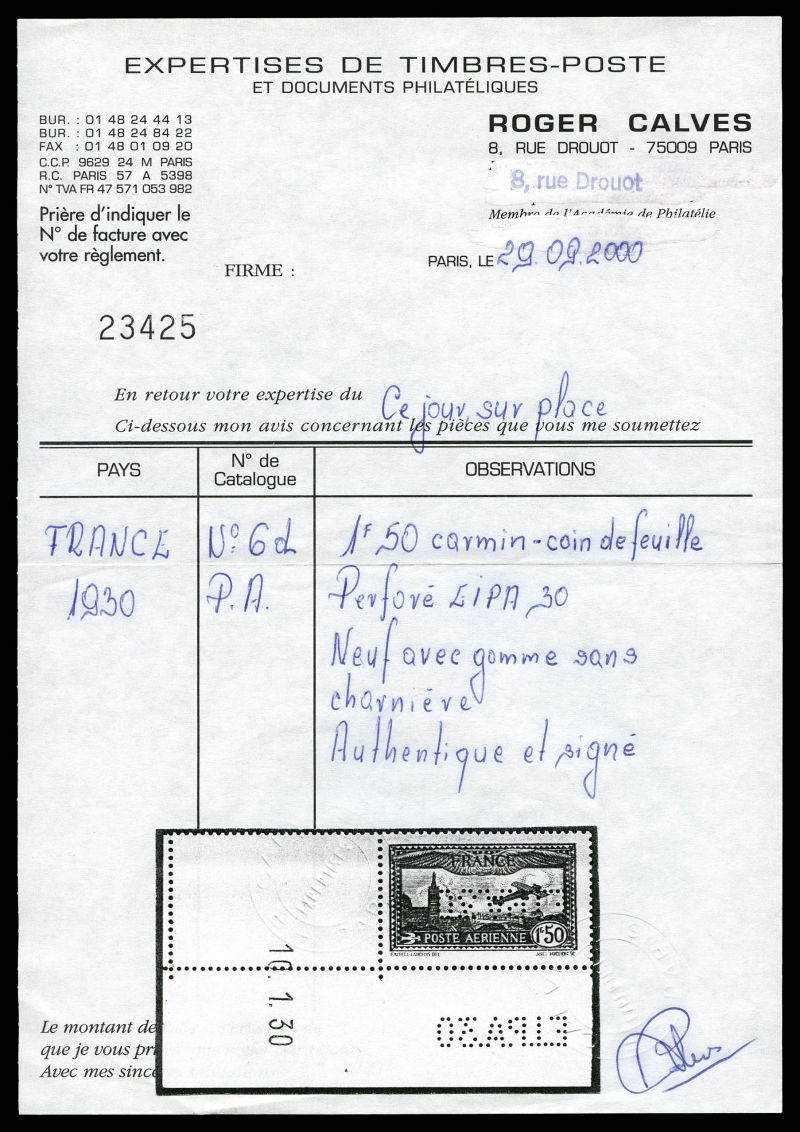 EXPERTISES DE TIMBRES-POSTE
ET DOCUMENTS PHILATÉLIQUES
BUR. : 01 48 24 44 13
BUR. : 01 48 24 84 22
FAX : 01 48 01 09 20
C.C.P. 9629 24 M PARIS
R.C. PARIS 57 A 5398
N° TVA FR 47 571 053 982
Prière d'indiquer le
N° de facture avec
votre règlement.
ROGER CALVES
8, RUE DROUOT - 75009 PARIS
8, rue Drouot
Membre de l'Académie de Philatélie
FIRME :
PARIS, LE 29.09.2000
23425
En retour votre expertise du Ce jour, sur place
Ci-dessous mon avis concernant les pièces que vous me soumettez
PAYS N° de Catalogue OBSERVATIONS
FRANCE N° 6d 1F 50 carmin - coin de feuille
1930 P.A. Perforé EIPA 30
Neuf avec gomme sans
charnière
Authentique et signé
FRANCE
POSTE AÉRIENNE 1F50
10.1.30
EIPA30
Le montant de
que je vous pri
Avec mes sincè